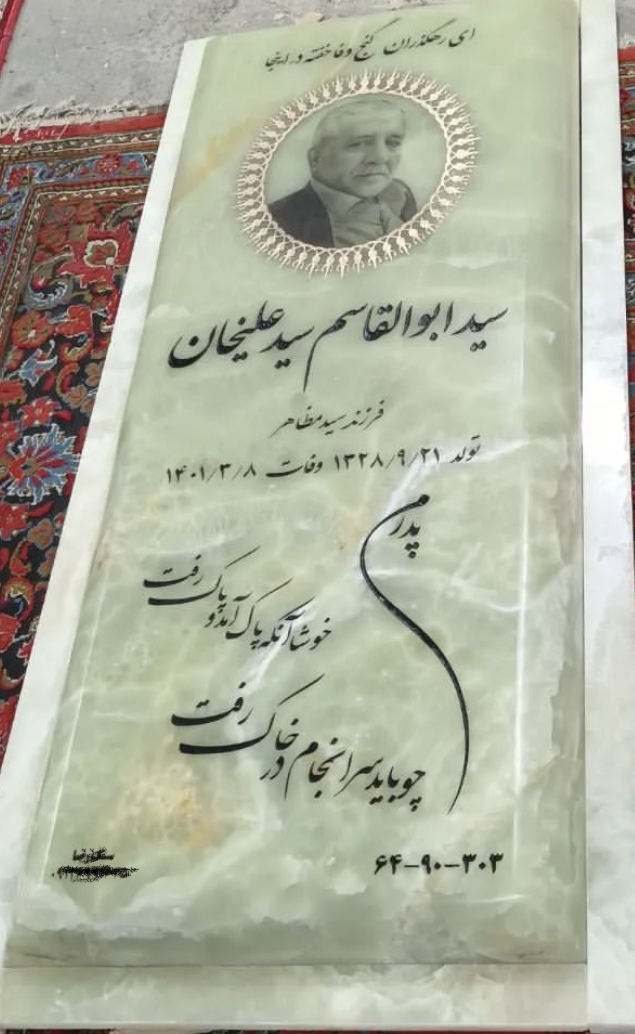 ای رهگذران گنج وفا خفته در اینجا
سید ابوالقاسم سید علیخان
فرزند سید مظاهر
تولد ۱۳۲۸/۹/۲۱ وفات ۱۴۰۱/۳/۸
پدر من
خوشا آنکه پاک آمد و پاک رفت
چو باید سرانجام در خاک رفت
۶۴-۹۰-۳۰۳